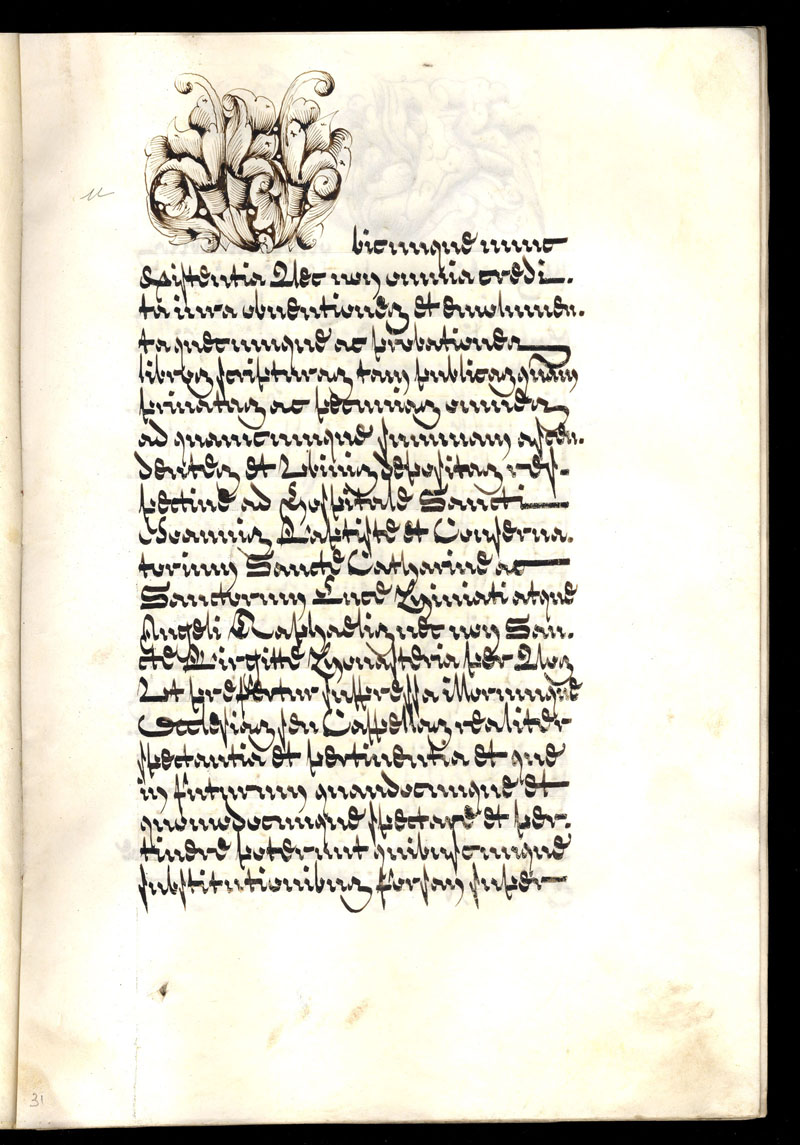 u
bicunque nunc
existentia Nec non omnia credi.
ta iura obuentiones et emolumen.
ta quecunque ac probationes
libros scripturas tam publicas quam
priuatas ac pecunias omnes
ad quamcunque summam ascen.
dentes et Vbiuis depositas res-
pectiue ad Hospitale Sancti
Ioannis Baptiste et Conserua.
torium Sancte Catharine ac
Sanctorum Luce Miniati atque
Angeli Raphaelis nec non San.
cte Birgitte Monasteria per Nos
Vt prefertur suppressa illorumque
Ecclesias seu Cappellas realiter
spectantia et pertinentia et que
in futurum quandocunque et
quomodocunque spectare et per.
tinere poterunt quibuscunque
substitutionibus forsan super
31